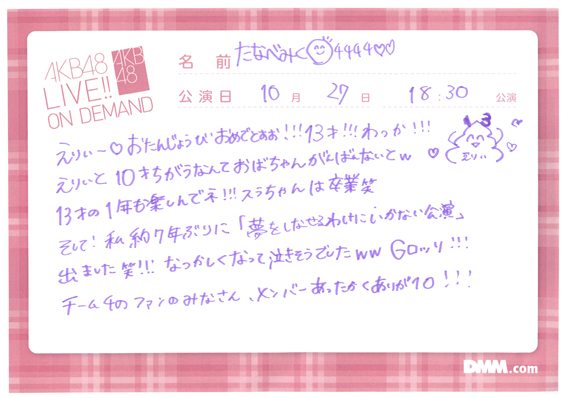 AKB48
LIVE!!
ON DEMAND
AKB
48
名前 たなべみく 4444♡♡
公演日 10月27日 18:30 公演
えりぃ〜♡おたんじょうびおめでとぉぉ!!!13才!!!わっか!!!
13
えりぃ
えりぃと10才ちがうなんておばちゃんがんばんないとw
13才の1年も楽しんでネ!!!スラちゃんは卒業笑
そして!私約7年ぶりに「夢をしなせるわけにいかない公演」
出ました笑!!!なつかしくなって泣きそうでしたww Gロッソ!!!
チーム4のファンのみなさん、メンバーあったかくありが10!!!
DMM.com